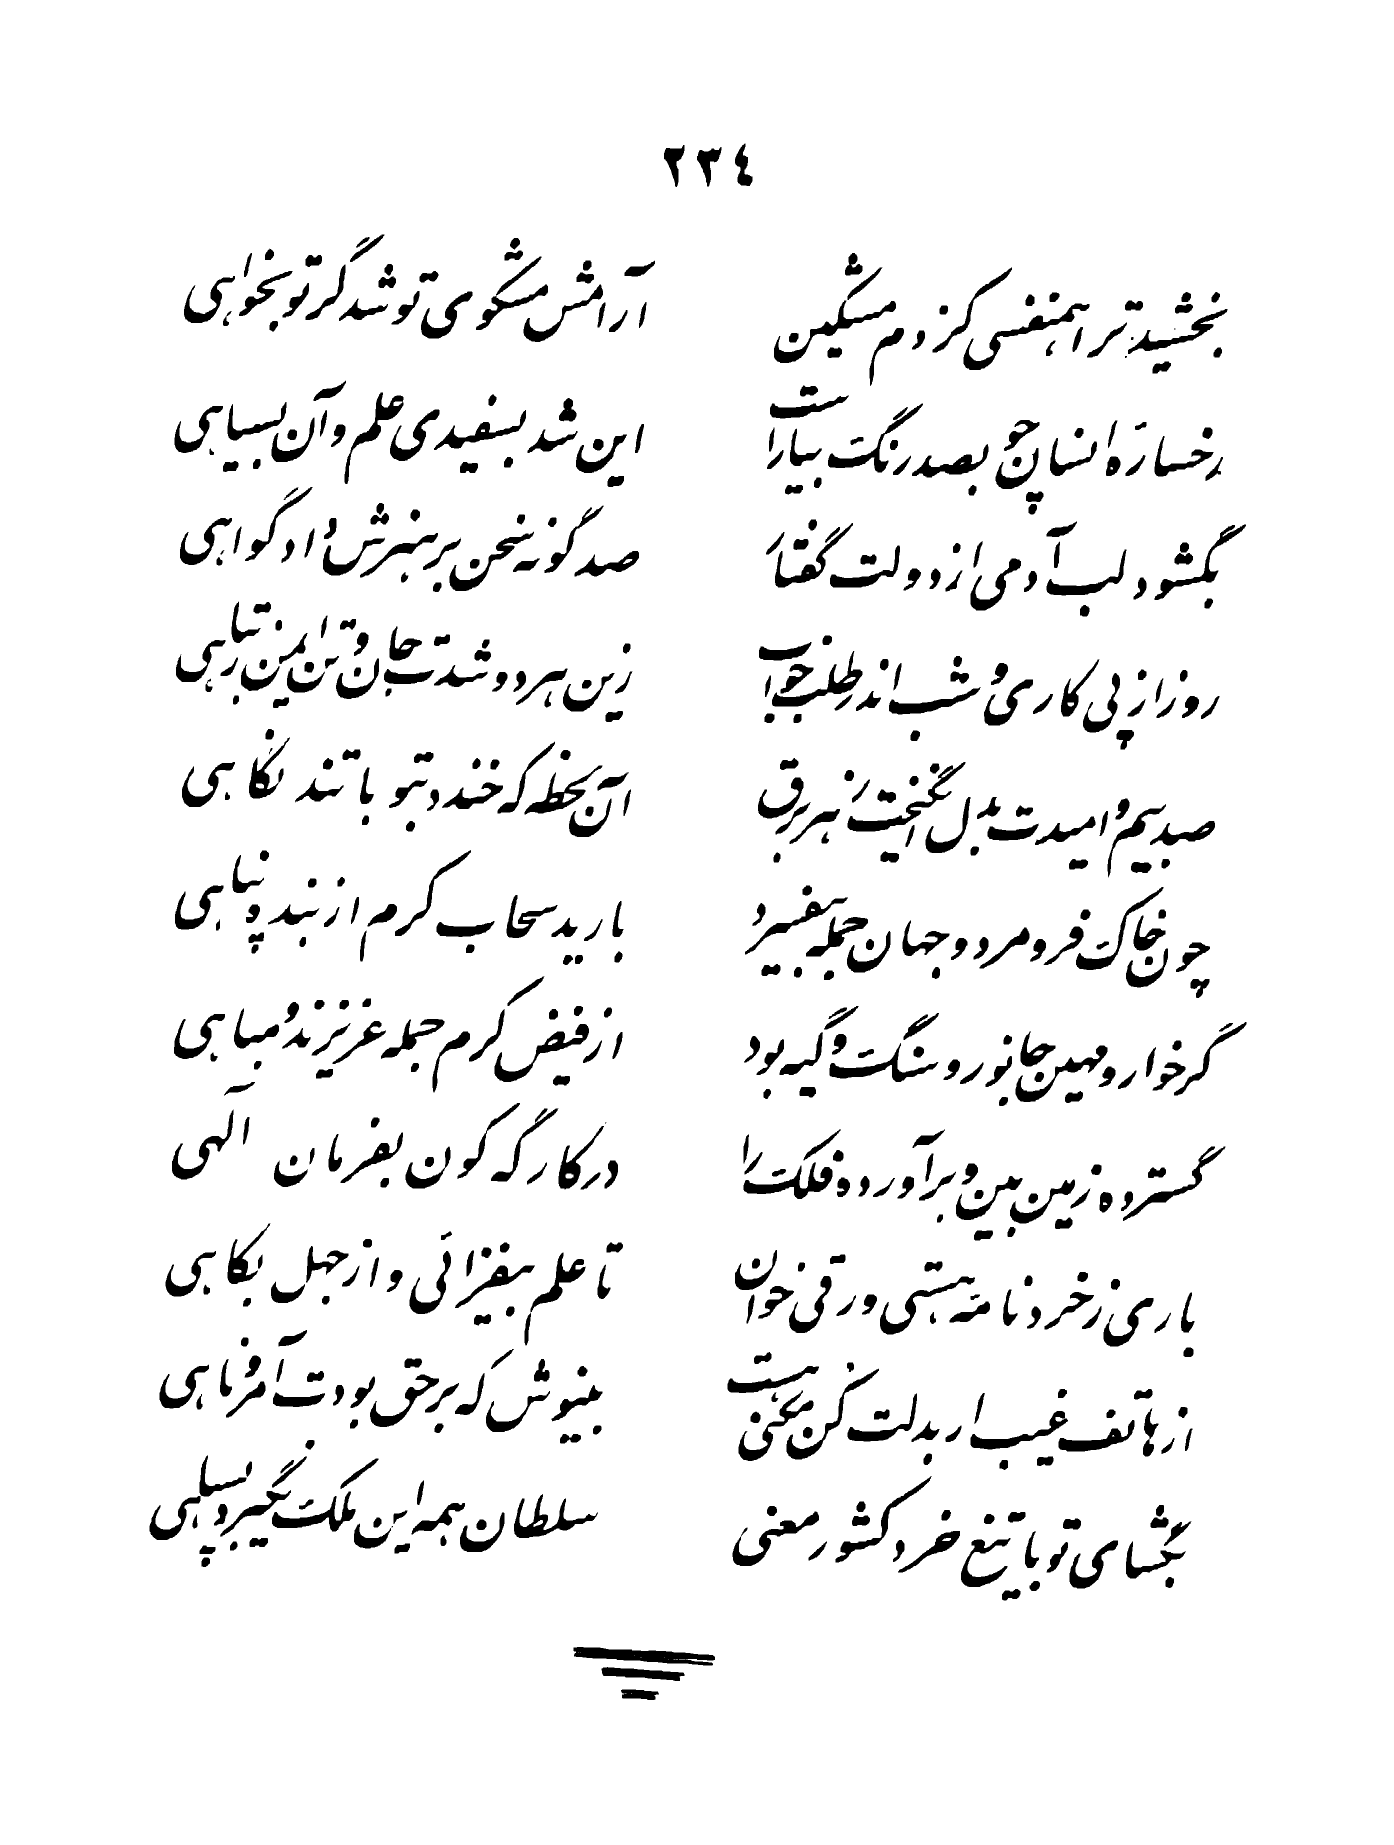 ۲۳٤
بخشید ترا همنفسی کز دم مشکین
آرامش مشکوی تو شد گر تو بخواهی
رخساره انسان چو بصد رنگ بیاراست
این شد بسفیدی علم و آن بسیاهی
بگشود لب آدمی از دولت گفتار
صد گونه سخن بر هنرش داد گواهی
روز از پی کاری و شب اندر طلب خواب
زین هر دو شدت جان و تن ایمن ز تباهی
صد بیم و امیدت بدل انگیخت ز هر برق
آن لحظه که خندد بتو با تند نگاهی
چون خاک فرو مرد و جهان جمله بیفسرد
بارید سحاب کرم از بنده پناهی
گر خوار و مهین جانور و سنگ و گیه بود
از فیض کرم جمله عزیزند و مباهی
گسترده زمین بین و برآورده فلک را
در کارگه کون بفرمان الهی
باری ز خرد نامه هستی ورقی خوان
تا علم بیفزائی و از جهل بکاهی
از هاتف غیب ار بدلت کن مکنی هست
بنیوش که بر حق بودت آمر و ناهی
بگشای تو با تیغ خرد کشور معنی
سلطان همه این ملک نگیرد بسپاهی